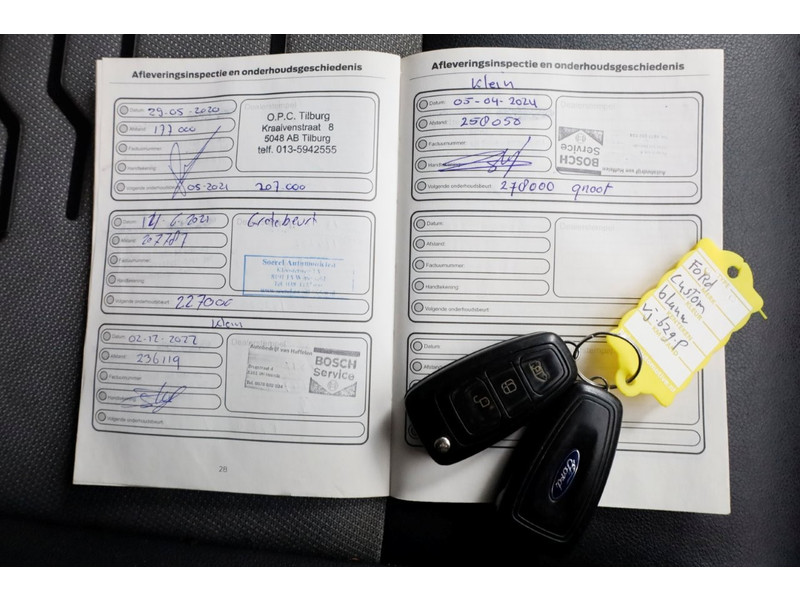 Afleveringsinspectie en onderhoudsgeschiedenis
Datum: 29-05-2020
Afstand: 177000
Factuurnummer:
Handtekening:
Volgende onderhoudsbeurt: 05-2021 207.000
O.P.C. Tilburg
Kraaivenstraat 8
5048 AB Tilburg
telf. 013-5942555
Datum: -6-2021
Afstand: 207787
Factuurnummer:
Handtekening:
Volgende onderhoudsbeurt: 227000
Grote beurt
Klein
Datum: 02-12-2022
Afstand: 236119
Factuurnummer:
Handtekening:
Volgende onderhoudsbeurt:
Autobedrijf van Hoffelen
BOSCH
Service
28
Afleveringsinspectie en onderhoudsgeschiedenis
Klein
Datum: 05-04-2024
Afstand: 258050
Factuurnummer:
Handtekening:
Volgende onderhoudsbeurt: 278000 groot
BOSCH
Service
Datum:
Afstand:
Factuurnummer:
Handtekening:
Volgende onderhoudsbeurt:
Datum:
Afstand:
Ford
Ford
Custom
blauw